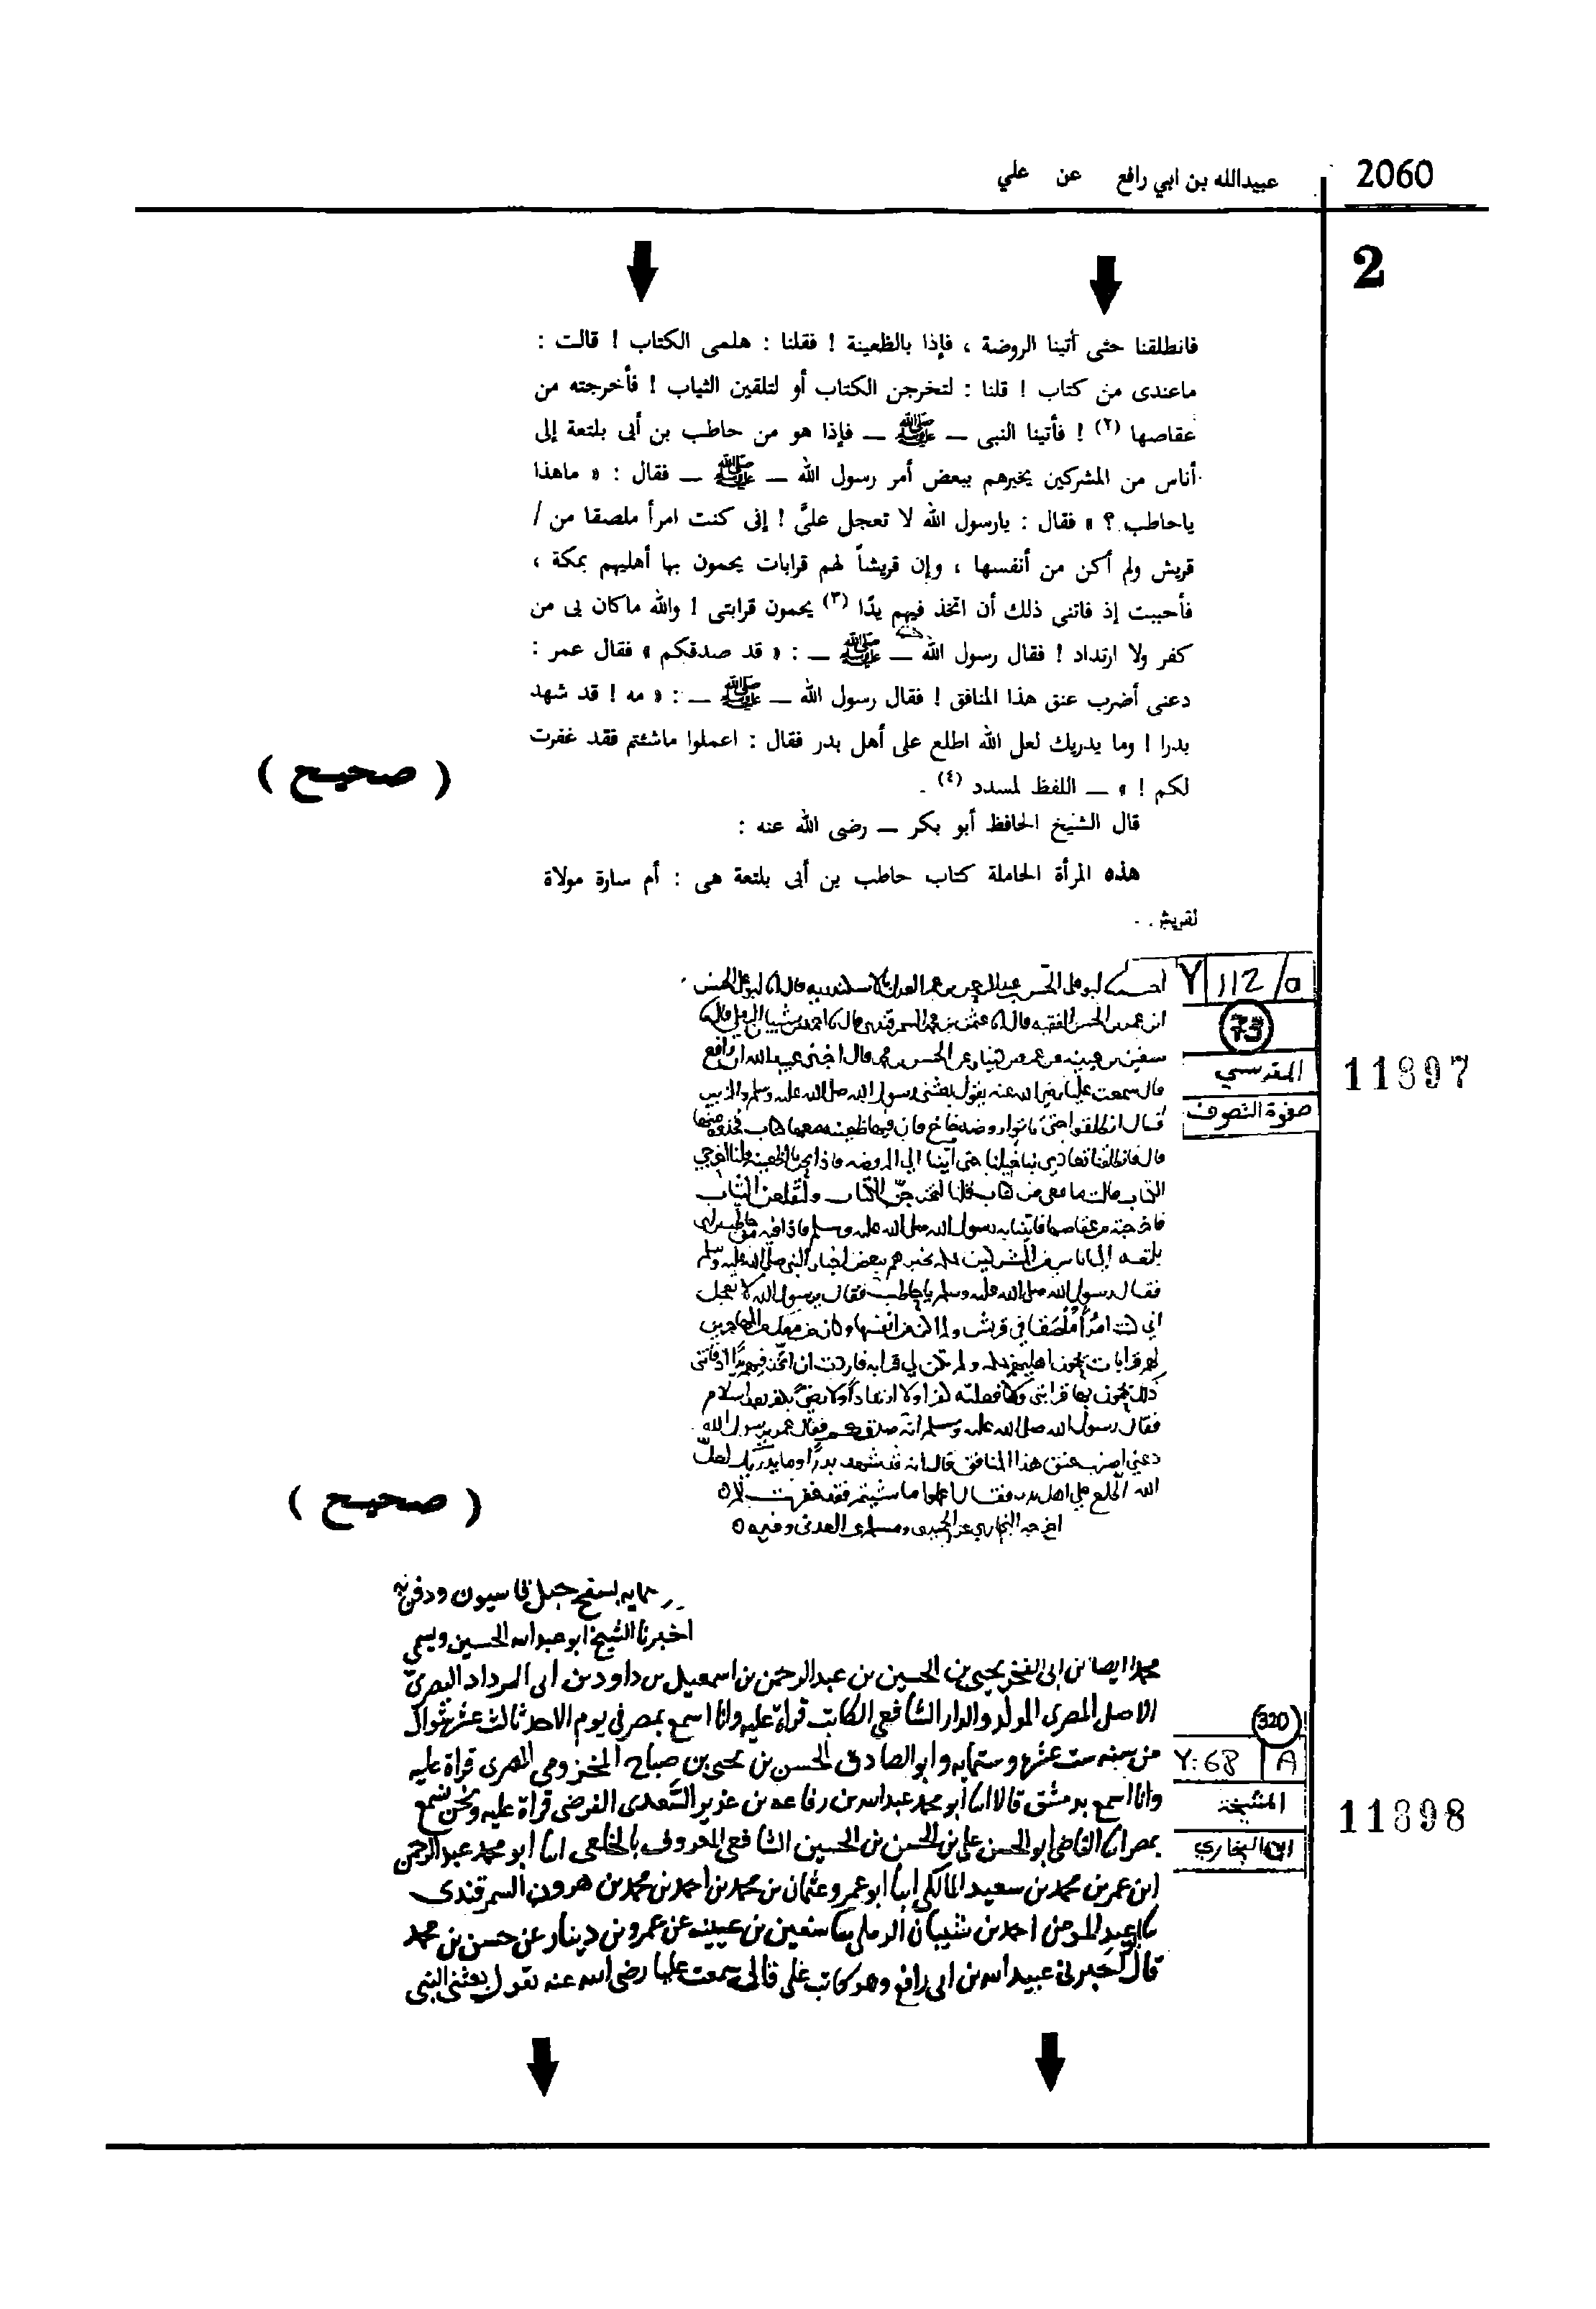 2060
عبيدالله بن ابي رافع عن علي
2
فانطلقنا حتى أتينا الروضة ، فإذا بالظعينة ! فقلنا : هلمى الكتاب ! قالت :
ماعندى من كتاب ! قلنا : لتخرجن الكتاب أو لتلقين الثياب ! فأخرجته من
عقاصها (٢) ! فأتينا النبى — ﷺ — فإذا هو من حاطب بن أبى بلتعة إلى
أناس من المشركين يخبرهم ببعض أمر رسول الله — ﷺ — فقال : « ماهذا
ياحاطب ؟ » فقال : يارسول الله لا تعجل علىَّ ! إنى كنت امرأ ملصقا من /
قريش ولم أكن من أنفسها ، وإن قريشاً لهم قرابات يحمون بها أهليهم بمكة ،
فأحببت إذ فاتنى ذلك أن اتخذ فيهم يدًا (٣) يحمون قرابتى ! والله ماكان بى من
كفر ولا ارتداد ! فقال رسول الله — ﷺ — : « قد صدقكم » فقال عمر :
دعنى أضرب عنق هذا المنافق ! فقال رسول الله — ﷺ — : « مه ! قد شهد
بدرا ! وما يدريك لعل الله اطلع على أهل بدر فقال : اعملوا ماشئتم فقد غفرت
لكم ! » — اللفظ لمسدد (٤) .
( صحيح )
قال الشيخ الحافظ أبو بكر — رضى الله عنه :
هذه المرأة الحاملة كتاب حاطب بن أبى بلتعة هى : أم سارة مولاة
لقريش .
Y 112/a
73
المقدسي
صفوة التصوف
11897
سفين بن عيينه عن عمرو بن دينار عن الحسن بن محمد قال اخبرني عبيد الله ابن رافع
قال سمعت عليا رضي الله عنه يقول بعثني رسول الله صلى الله عليه وسلم والزبير
فقال انطلقوا حتى تاتوا روضه خاخ فان فيها ظعينه معها كتاب فخذوه منها
قال فانطلقنا تعادي بنا خيلنا حتى اتينا الى الروضه فاذا نحن بالظعينه قلنا اخرجي
الكتاب قالت ما معي من كتاب قلنا لتخرجن الكتاب او لتلقين الثياب
فاخرجته من عقاصها فاتينا به رسول الله صلى الله عليه وسلم فاذا فيه من حاطب بن ابي
بلتعه الى اناس من المشركين بمكه يخبرهم ببعض اخبار النبي صلى الله عليه وسلم
فقال رسول الله صلى الله عليه وسلم يا حاطب فقال يرسول الله لا تعجل
اني كنت امرُأ مُلصَقا في قريش ولم اكن من انفسها وكان من معك من المهاجرين
لهم قرابات يحمون اهليهم بمكه ولم تكن لي قرابه فاردت ان اتخذ فيهم يدًا اذ فاتني
ذلك يحمون بها قرابتي وما فعلته كفرا ولا ارتدادًا ولا رضيً بكفر بعد اسلام
فقال رسول الله صلى الله عليه وسلم انه صدقكم فقال عمر يرسول الله
دعني اضرب عنق هذا المنافق قال انه قد شهد بدرًا وما يدريك لعلّ
الله اطّلع على اهل بدر فقال اعملوا ما شيتم فقد غفرت لكم
اخرجه البخاري عن الحميدي ومسلم عن العدني وغيره
( صحيح )
بسفح جبل قاسيون ودفن به
اخبرنا الشيخ ابو عبدالله الحسين ويسمى
محمدا ايضا بن ابي الفخر يحيى بن الحسين بن عبدالرحمن بن اسمعيل بن داود بن ابي الرداد البصري
الاصل المصري المولد والدار الشافعي الكاتب قراة عليه وانا اسمع بمصر في يوم الاحد ثالث عشر شوال
من سنه ست عشره وستمايه وابو الصادق الحسن بن يحيى بن صباح المخزومي المصري قراة عليه
وانا اسمع بدمشق قالا انا ابو محمد عبدالله بن رفاعه بن غدير السعدي الفرضي قراة عليه ونحن نسمع
بمصر انا القاضي ابو الحسن علي بن الحسن بن الحسين الشافعي المعروف بالخلعي انا ابو محمد عبدالرحمن
ابن عمر بن محمد بن سعيد المالكي انبا ابو عمرو عثمان بن محمد بن احمد بن محمد بن هرون السمرقندي
احمد بن شيبان الرملي ثنا سفين بن عيينه عن عمرو بن دينار عن حسن بن محمد
قال اخبرني عبيد الله بن ابي رافع وهو كاتب علي قال سمعت عليا رضي الله عنه يقول بعثني النبي
320
Y: 68 A
المشيخة
ابن البخاري
11898